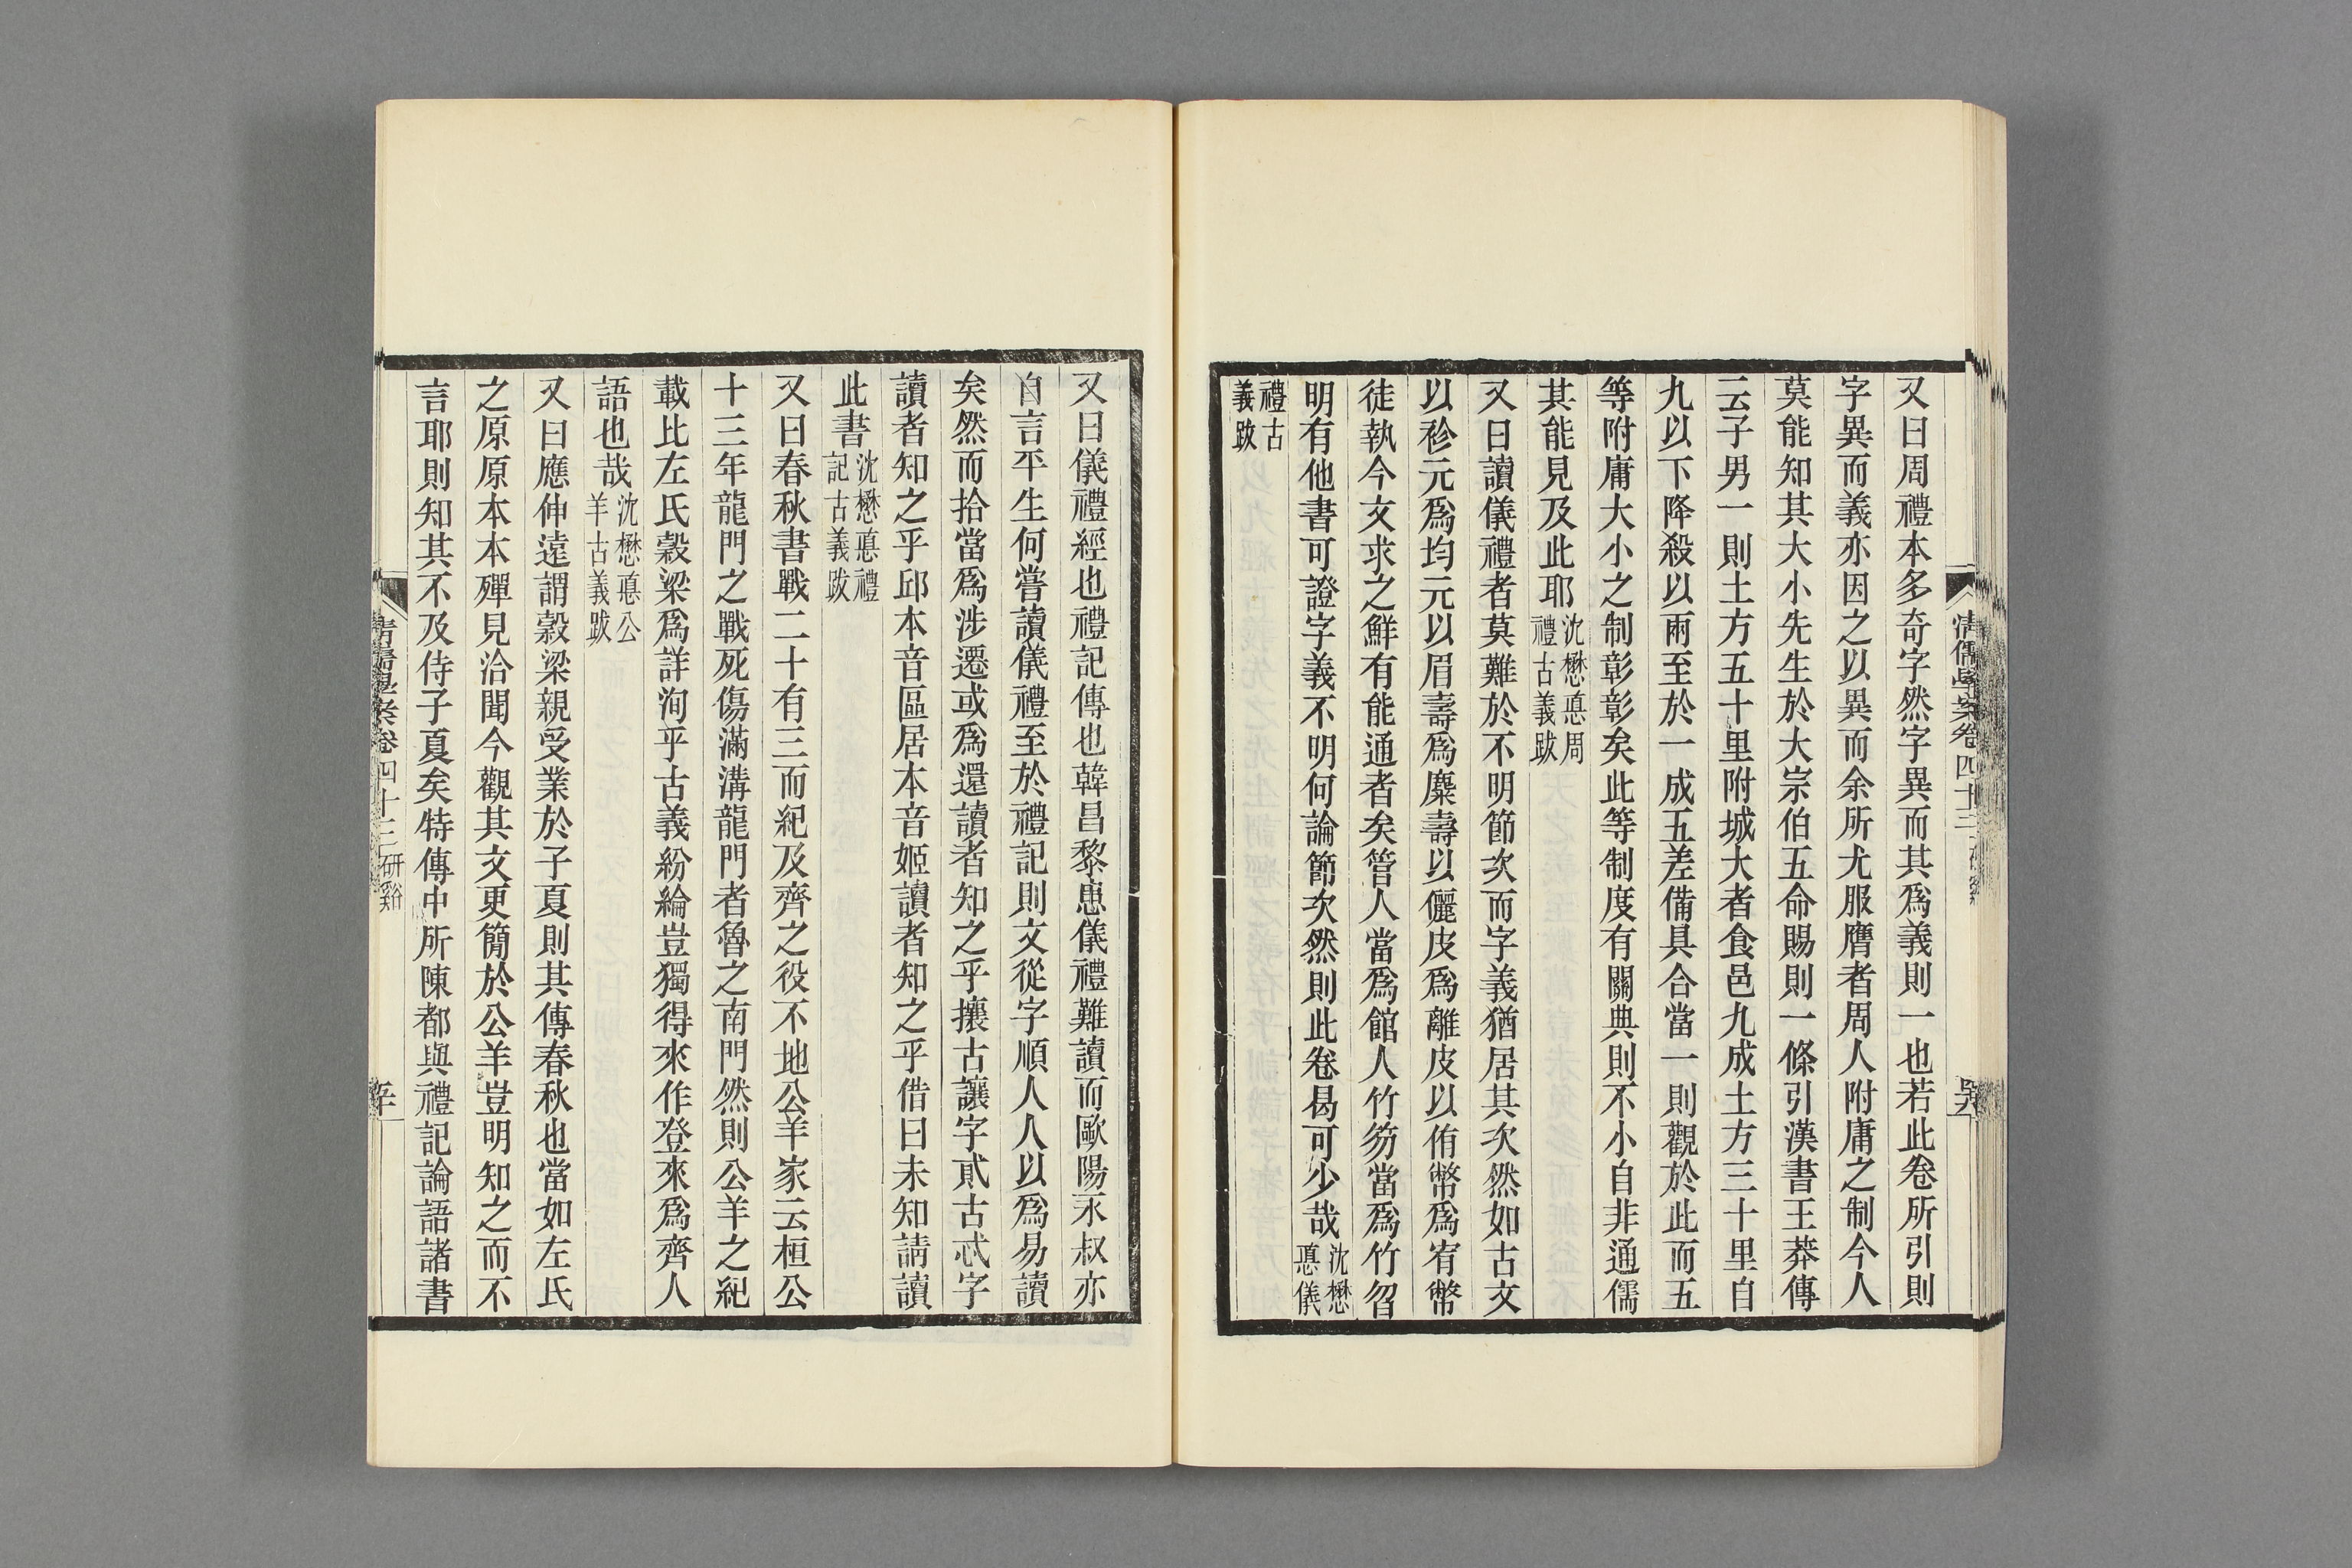 又曰周禮本多奇字然字異而其爲義則一也若此卷所引則
字異而義亦因之以異而余所尤服膺者周人附庸之制今人
莫能知其大小先生於大宗伯五命賜則一條引漢書王莽傳
云子男一則土方五十里附城大者食邑九成土方三十里自
九以下降殺以兩至於一成五差備具合當一則觀於此而五
等附庸大小之制彰彰矣此等制度有關典則不小自非通儒
其能見及此耶沈懋悳周禮古義跋
又曰讀儀禮者莫難於不明節次而字義猶居其次然如古文
以袗元爲均元以眉壽爲麋壽以儷皮爲離皮以侑幣爲宥幣
徒執今文求之鮮有能通者矣管人當爲館人竹笏當爲竹曶
明有他書可證字義不明何論節次然則此卷曷可少哉沈懋悳儀
禮古義跋
清儒學案卷四十三
又曰儀禮經也禮記傳也韓昌黎患儀禮難讀而歐陽永叔亦
自言平生何嘗讀儀禮至於禮記則文從字順人人以爲易讀
矣然而拾當爲涉遷或爲還讀者知之乎攘古讓字貳古忒字
讀者知之乎邱本音區居本音姬讀者知之乎借曰未知請讀
此書沈懋悳禮記古義跋
又曰春秋書戰二十有三而紀及齊之役不地公羊家云桓公
十三年龍門之戰死傷滿溝龍門者魯之南門然則公羊之紀
載比左氏穀梁爲詳洵乎古義紛綸豈獨得來作登來爲齊人
語也哉沈懋悳公羊古義跋
又曰應仲遠謂穀梁親受業於子夏則其傳春秋也當如左氏
之原原本本殫見洽聞今觀其文更簡於公羊豈明知之而不
言耶則知其不及侍子夏矣特傳中所陳都與禮記論語諸書
清儒學案卷四十三 研谿